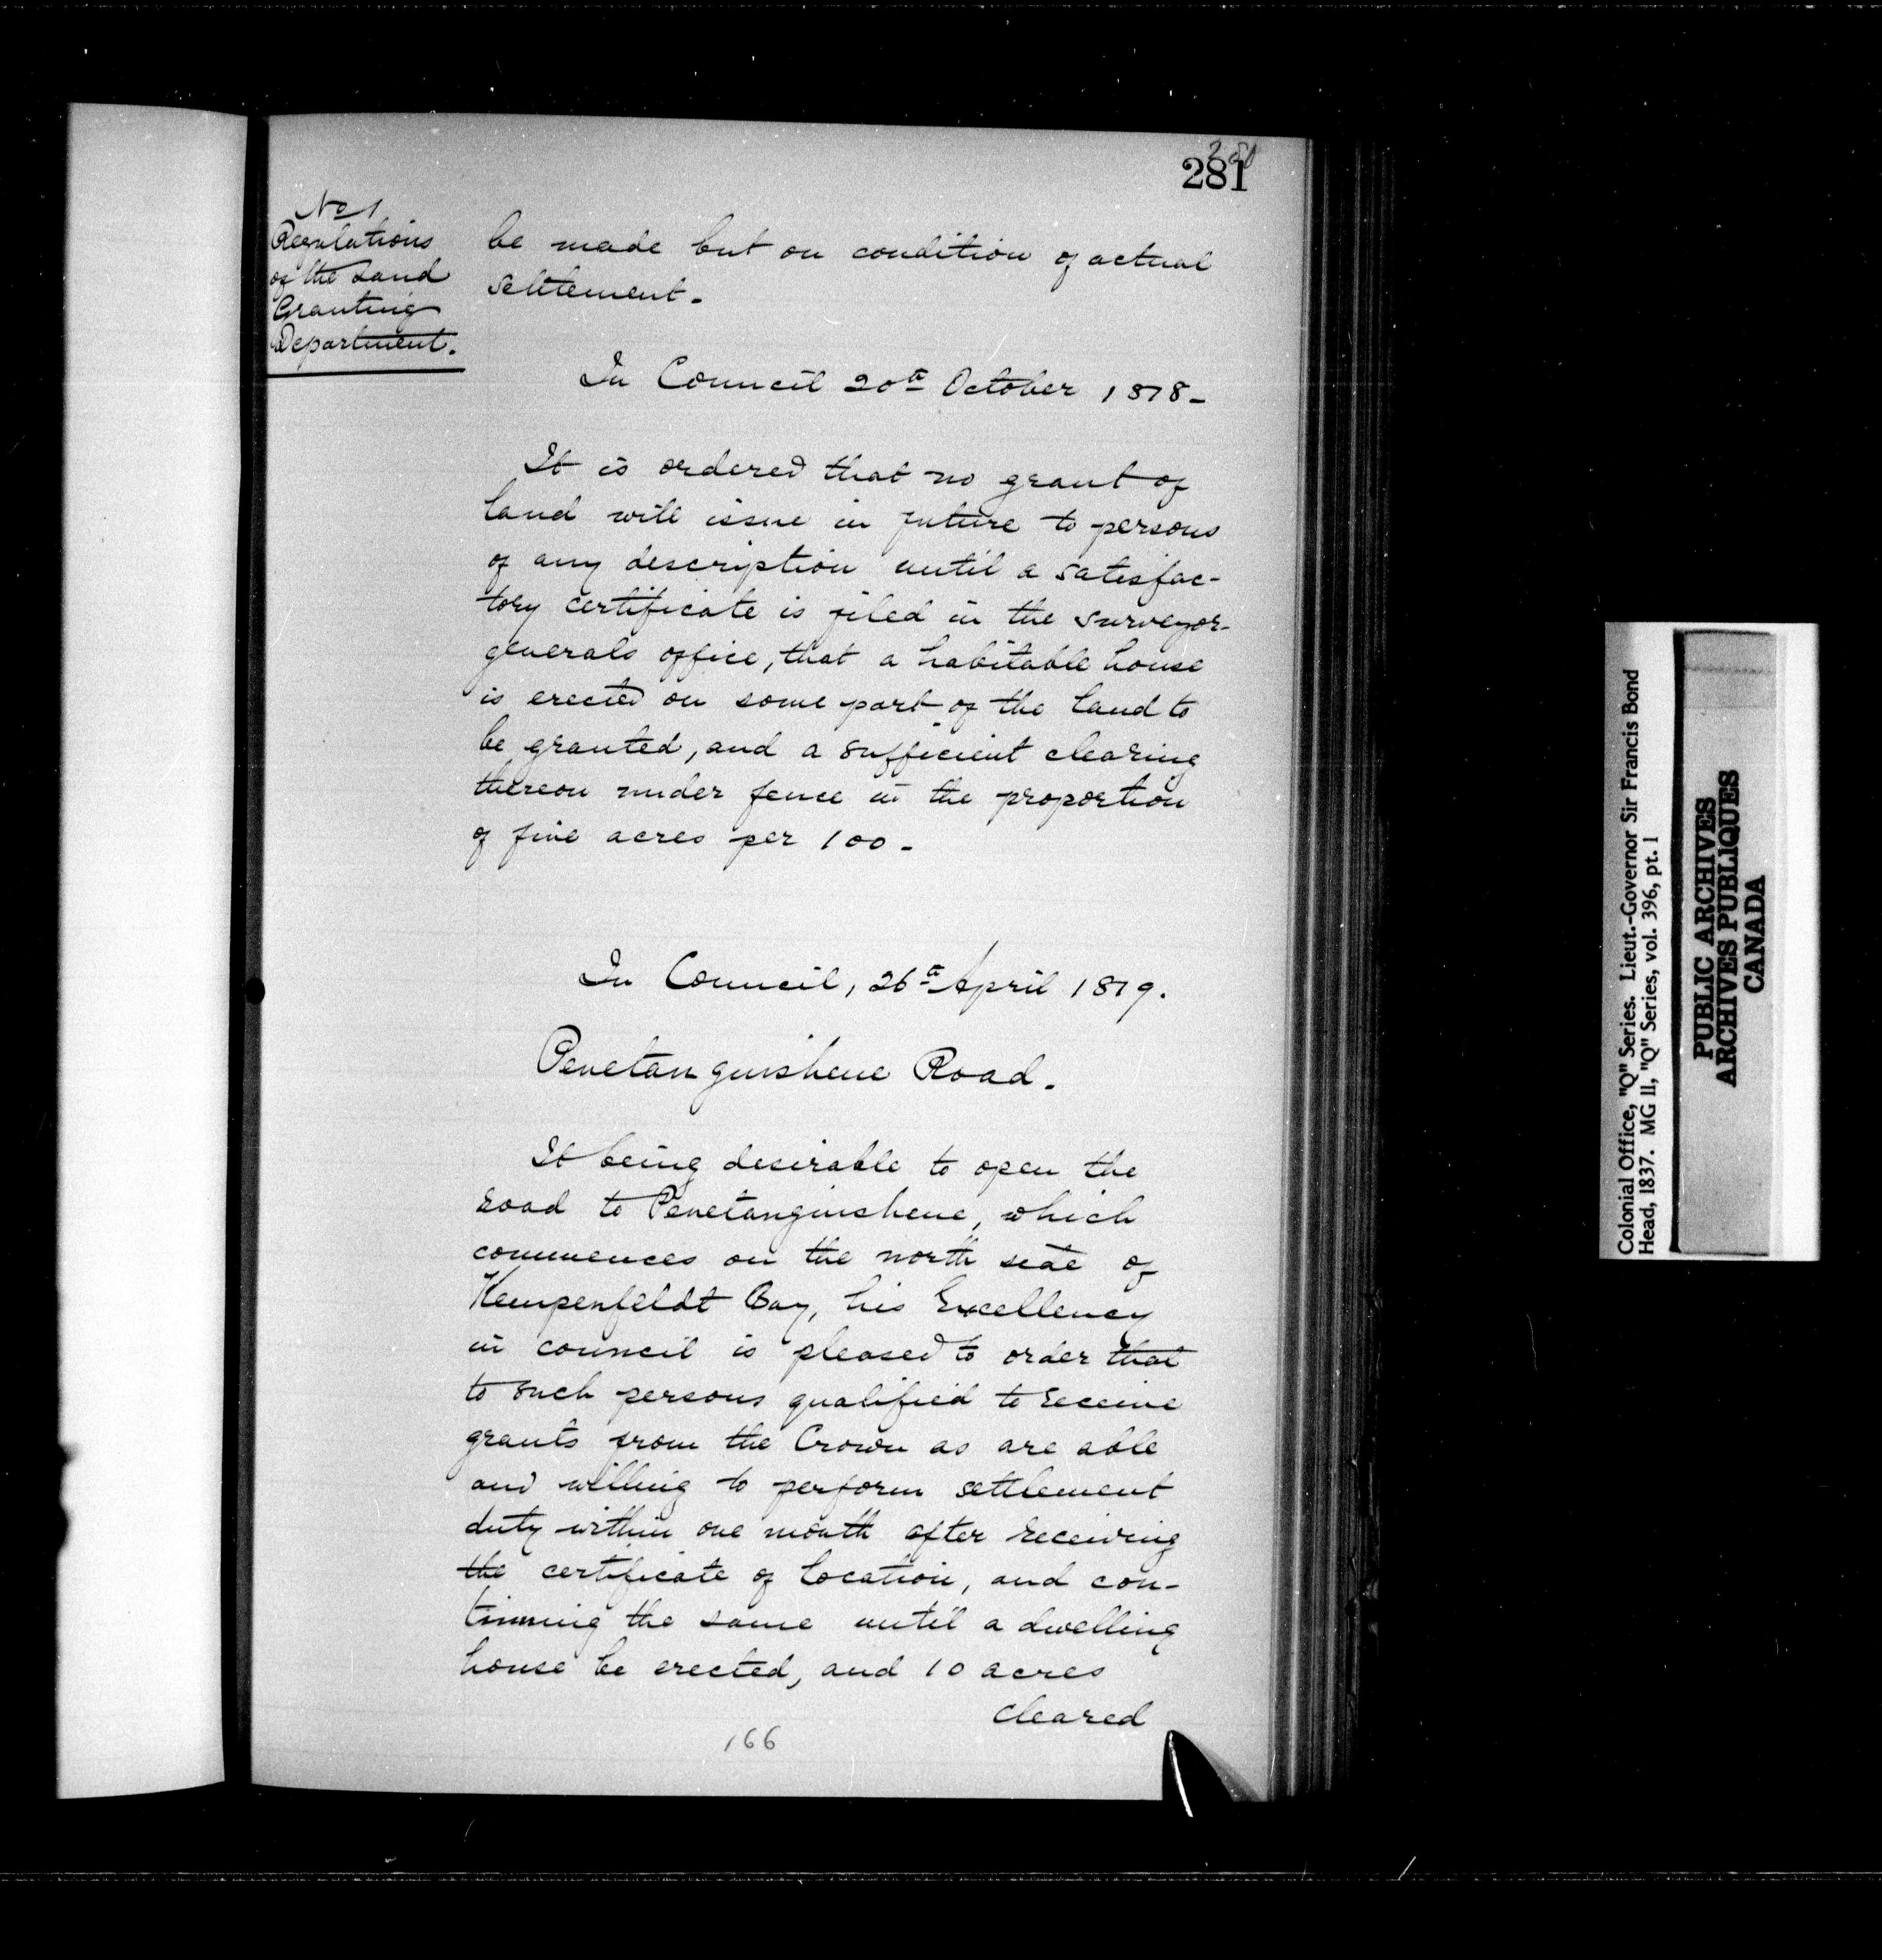 280
281
No 1
Regulations
of the Land
Granting
Department.
be made but on condition of actual
settlement.
In Council 20th October 1818-
It is ordered that no grant of
land will issue in future to persons
of any description until a satisfac-
tory certificate is filed in the surveyor-
generals office, that a habitable house
is erected on some part of the land to
be granted, and a sufficient clearing
thereon under fence in the proportion
of five acres per 100-
In Council, 26th April 1819.
Penetanguishene Road.
It being desirable to open the
road to Penetanguishene, which
commences on the north side of
Kempenfeldt Bay, his Excellency
in council is pleased to order that
to such persons qualified to receive
grants from the Crown as are able
and willing to perform settlement
duty within one month after receiving
the certificate of location, and con-
tinuing the same until a dwelling
house be erected, and 10 acres
cleared
166
Colonial Office, "Q" Series. Lieut.-Governor Sir Francis Bond
Head, 1837. MG 11, "Q" Series, vol. 396, pt. 1
PUBLIC ARCHIVES
ARCHIVES PUBLIQUES
CANADA